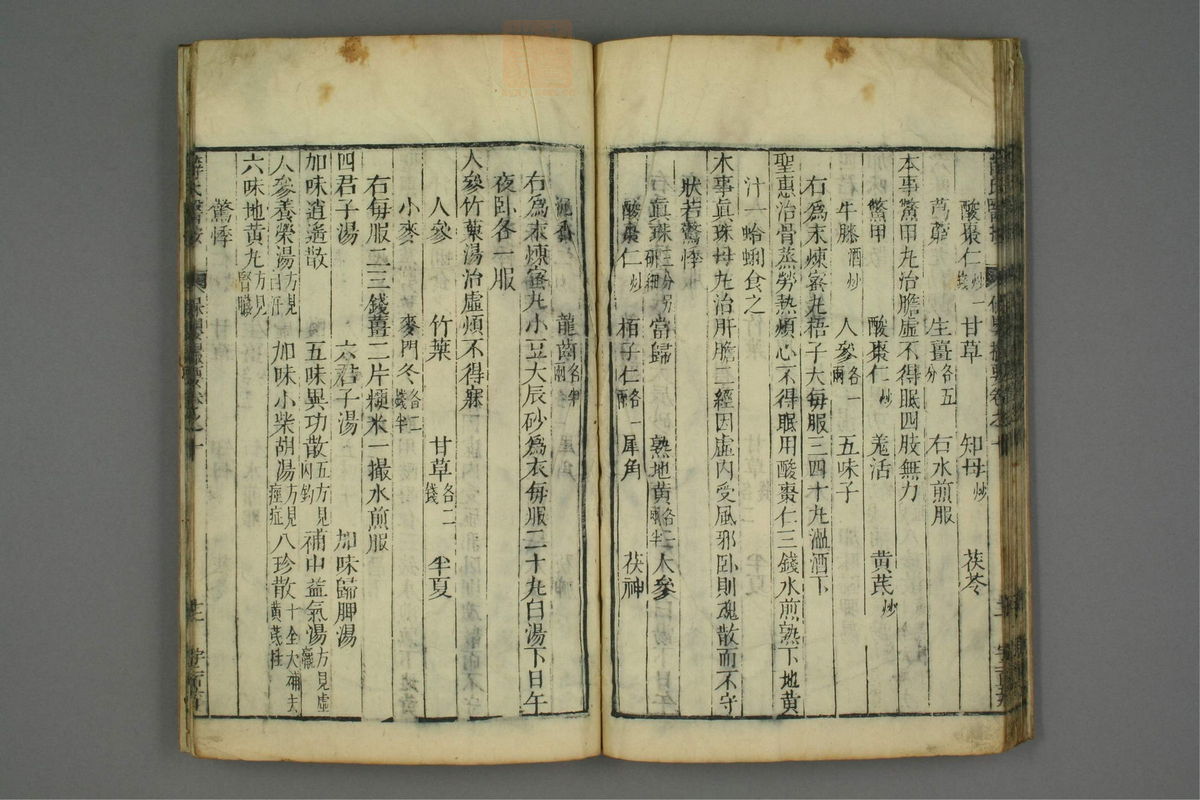 酸棗仁炒一錢 甘草 知母炒 茯苓
萵苣 生薑各五分 右水煎服
本事鱉甲丸治膽虛不得眠四肢無力
鱉甲 酸棗仁炒 羗活 黃芪炒
牛膝酒炒 人參各一兩 五味子
右爲末煉蜜丸梧子大每服三四十丸溫酒下
聖惠治骨蒸勞熱煩心不得眠用酸棗仁三錢水煎熟下地黃
汁一蛤蜊食之
本事眞珠母丸治肝膽二經因虛內受風邪卧則魂散而不守
狀若驚悸
眞珠三分另研細 當歸 熟地黃各一兩半 人參
酸棗仁炒 栢子仁各一兩 犀角 茯神
沉香 龍齒各半兩
右爲末煉蜜丸小豆大辰砂爲衣每服二十丸白湯下日午
夜卧各一服
人參竹葉湯治虛煩不得寐
人參 竹葉 甘草各二錢 半夏
小麥 麥門冬各二錢半
右每服二三錢薑二片粳米一撮水煎服
四君子湯 六君子湯 加味歸脾湯
加味逍遙散 五味異功散五方見內釣 補中益氣湯方見虛羸
人參養榮湯方見白汗 加味小柴胡湯方見痙症 八珍散十全大補去黃芪桂
六味地黃丸方見腎臟
驚悸